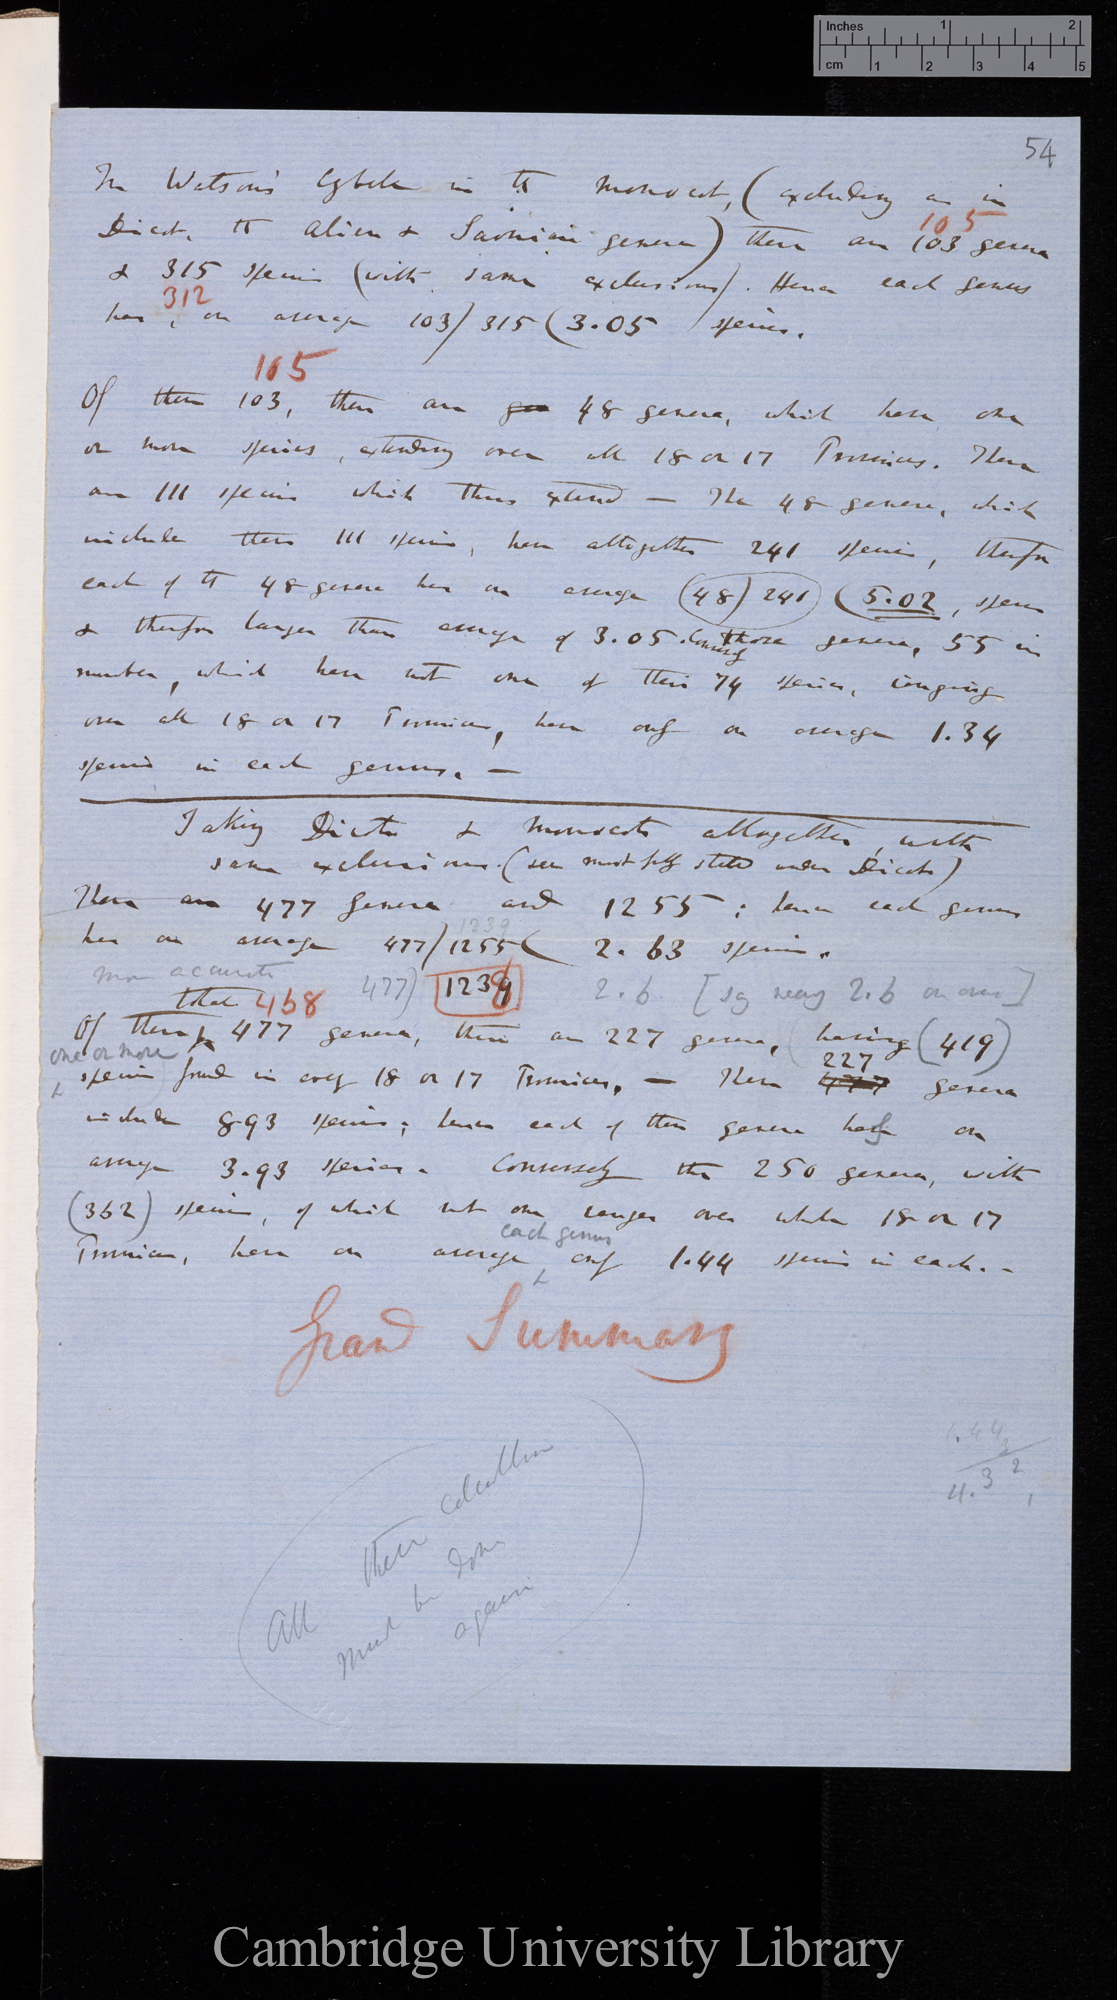 Inches 1 2
cm 1 2 3 4 5
54
In Watson's Cybele in the Monocot, (excluding as in
105
Dicot. the alien & genera) there are 103 genera
& 315 species (with same exclusions). Hence each genus
312
has, on average 103) 315 ( 3.05 species.
105
Of these 103, there are gen 48 genera, which have one
or more species, extending over all 18 or 17 Provinces. There
are 111 species which thus extend — The 48 genera, which
include these 111 species, have altogether 241 species, therefore
each of the 48 genera has on average (48) 241 (5.02, species
& therefore larger than average of 3.05. Conversely those genera, 55 in
number, which have not one of their 74 species, ranging
over all 18 or 17 Provinces, have only on average 1.34
species in each genus. —
Taking Dicots & Monocots altogether, with
same exclusions. (see most fully stated under Dicots)
There are 477 genera and 1255; hence each genus
1239
has on average 477) 1255 ( 2.63 species.
more accurate 477) 1239 2.6 [say 2.6 on aver]
total 468
Of these 477 genera, there are 227 genera, having (419)
one or more 227
species found in only 18 or 17 Provinces. — These 477 genera
include 893 species; hence each of these genera has on
average 3.93 species. Conversely the 250 genera, with
(362) species, of which not one ranges over whole 18 or 17
each genus
Provinces, have on average only 1.44 species in each. —
Grand Summary
1.44
4.32
All these calculations
must be done
again
Cambridge University Library